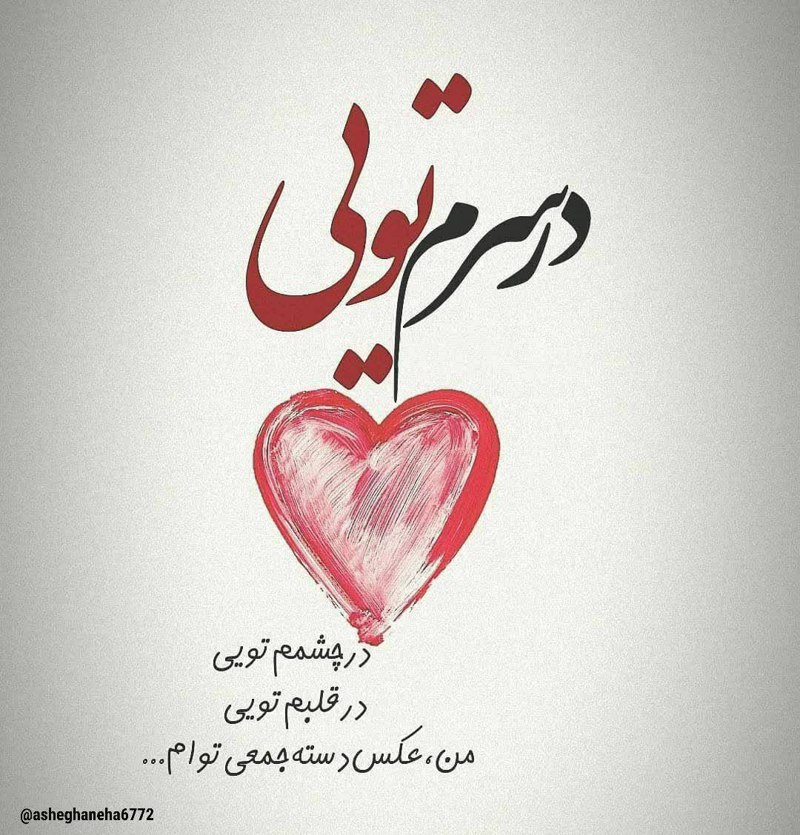 در سرم تویی
در چشمم تویی
در قلبم تویی
من، عکس دسته جمعی توام...
@asheghaneha6772